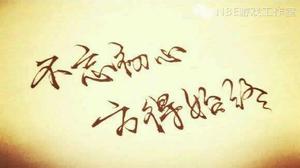 N8E游戏工作室
不忘初心
方得始终